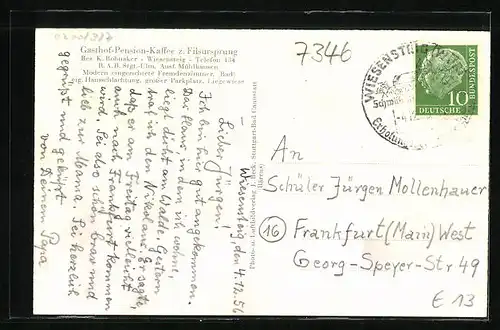 0200/317
Gasthof-Pension-Kaffee z. Filsursprung
Bes. K. Bohnaker - Wiesensteig - Telefon 134
B.A.B. Stgt.-Ulm, Ausf. Mühlhausen
Modern eingerichtete Fremdenzimmer, Bad,
eig. Hausschlachtung, großer Parkplatz, Liegewiese
Wiesensteig, den 4.12.56
Lieber Jürgen!
Ich bin hier gut angekommen.
Das Haus, in dem ich wohne,
liegt dicht am Walde. Gestern
traf ich den Nikolaus. Er sagte,
daß er am Freitag vielleicht
auch nach Frankfurt kommen
wird. Sei also schön brav und
lieb zur Mama. Sei herzlich
gegrüßt und geküßt
von Deinem Papa
7346
WIESENSTEIG
DEUTSCHE
BUNDESPOST
10
An
Schüler Jürgen Mollenhauer
16 Frankfurt (Main) West
Georg-Speyer-Str 49
E 13